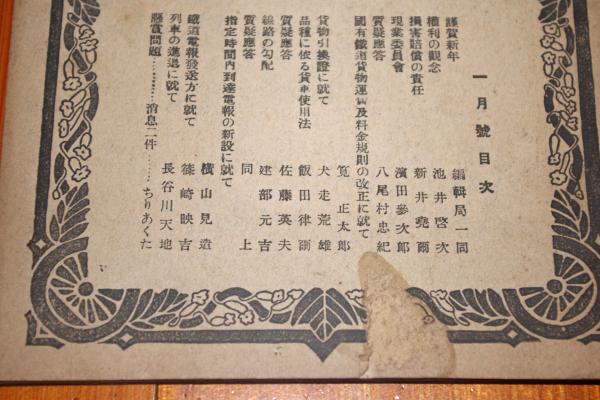 一月號目次
謹賀新年 編輯局一同
權利の觀念 池井啓次
損害賠償の責任 新井堯爾
現業委員會 濱田參次郎
質疑應答 八尾村忠紀
國有鐵道貨物運賃及料金規則の改正に就て 筧正太郎
貨物引換證に就て 犬走荒雄
品種に依る貨車使用法 飯田律爾
質疑應答 佐藤英夫
線路の勾配 建部元吉
質疑應答 同上
指定時間內到達電報の新設に就て 橫山見造
鐵道電報發送方に就て 篠崎映吉
列車の進退に就て 長谷川天地
懸賞問題………消息二件……ちりあくた